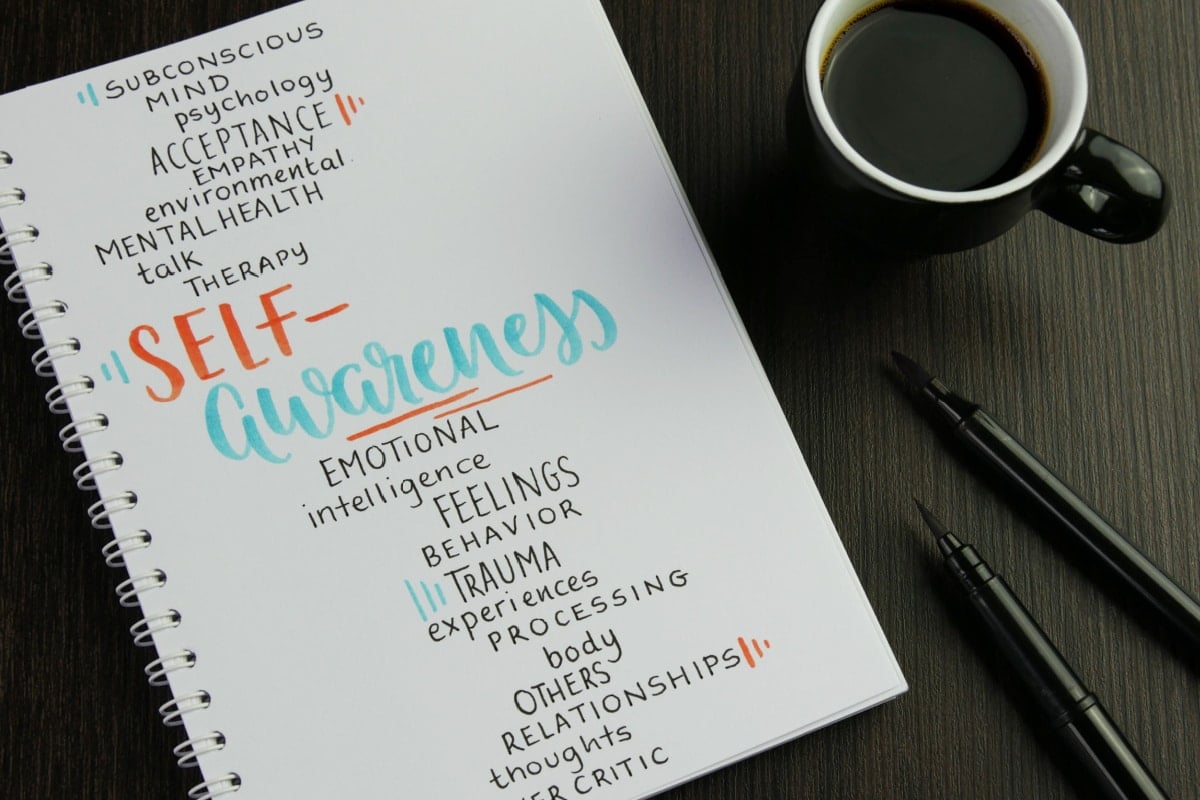 SUBCONSCIOUS
MIND
psychology
ACCEPTANCE
EMPATHY
environmental
MENTAL HEALTH
talk
THERAPY
SELF-
awareness
EMOTIONAL
intelligence
FEELINGS
BEHAVIOR
TRAUMA
experiences
PROCESSING
body
OTHERS
RELATIONSHIPS
thoughts
CRITIC